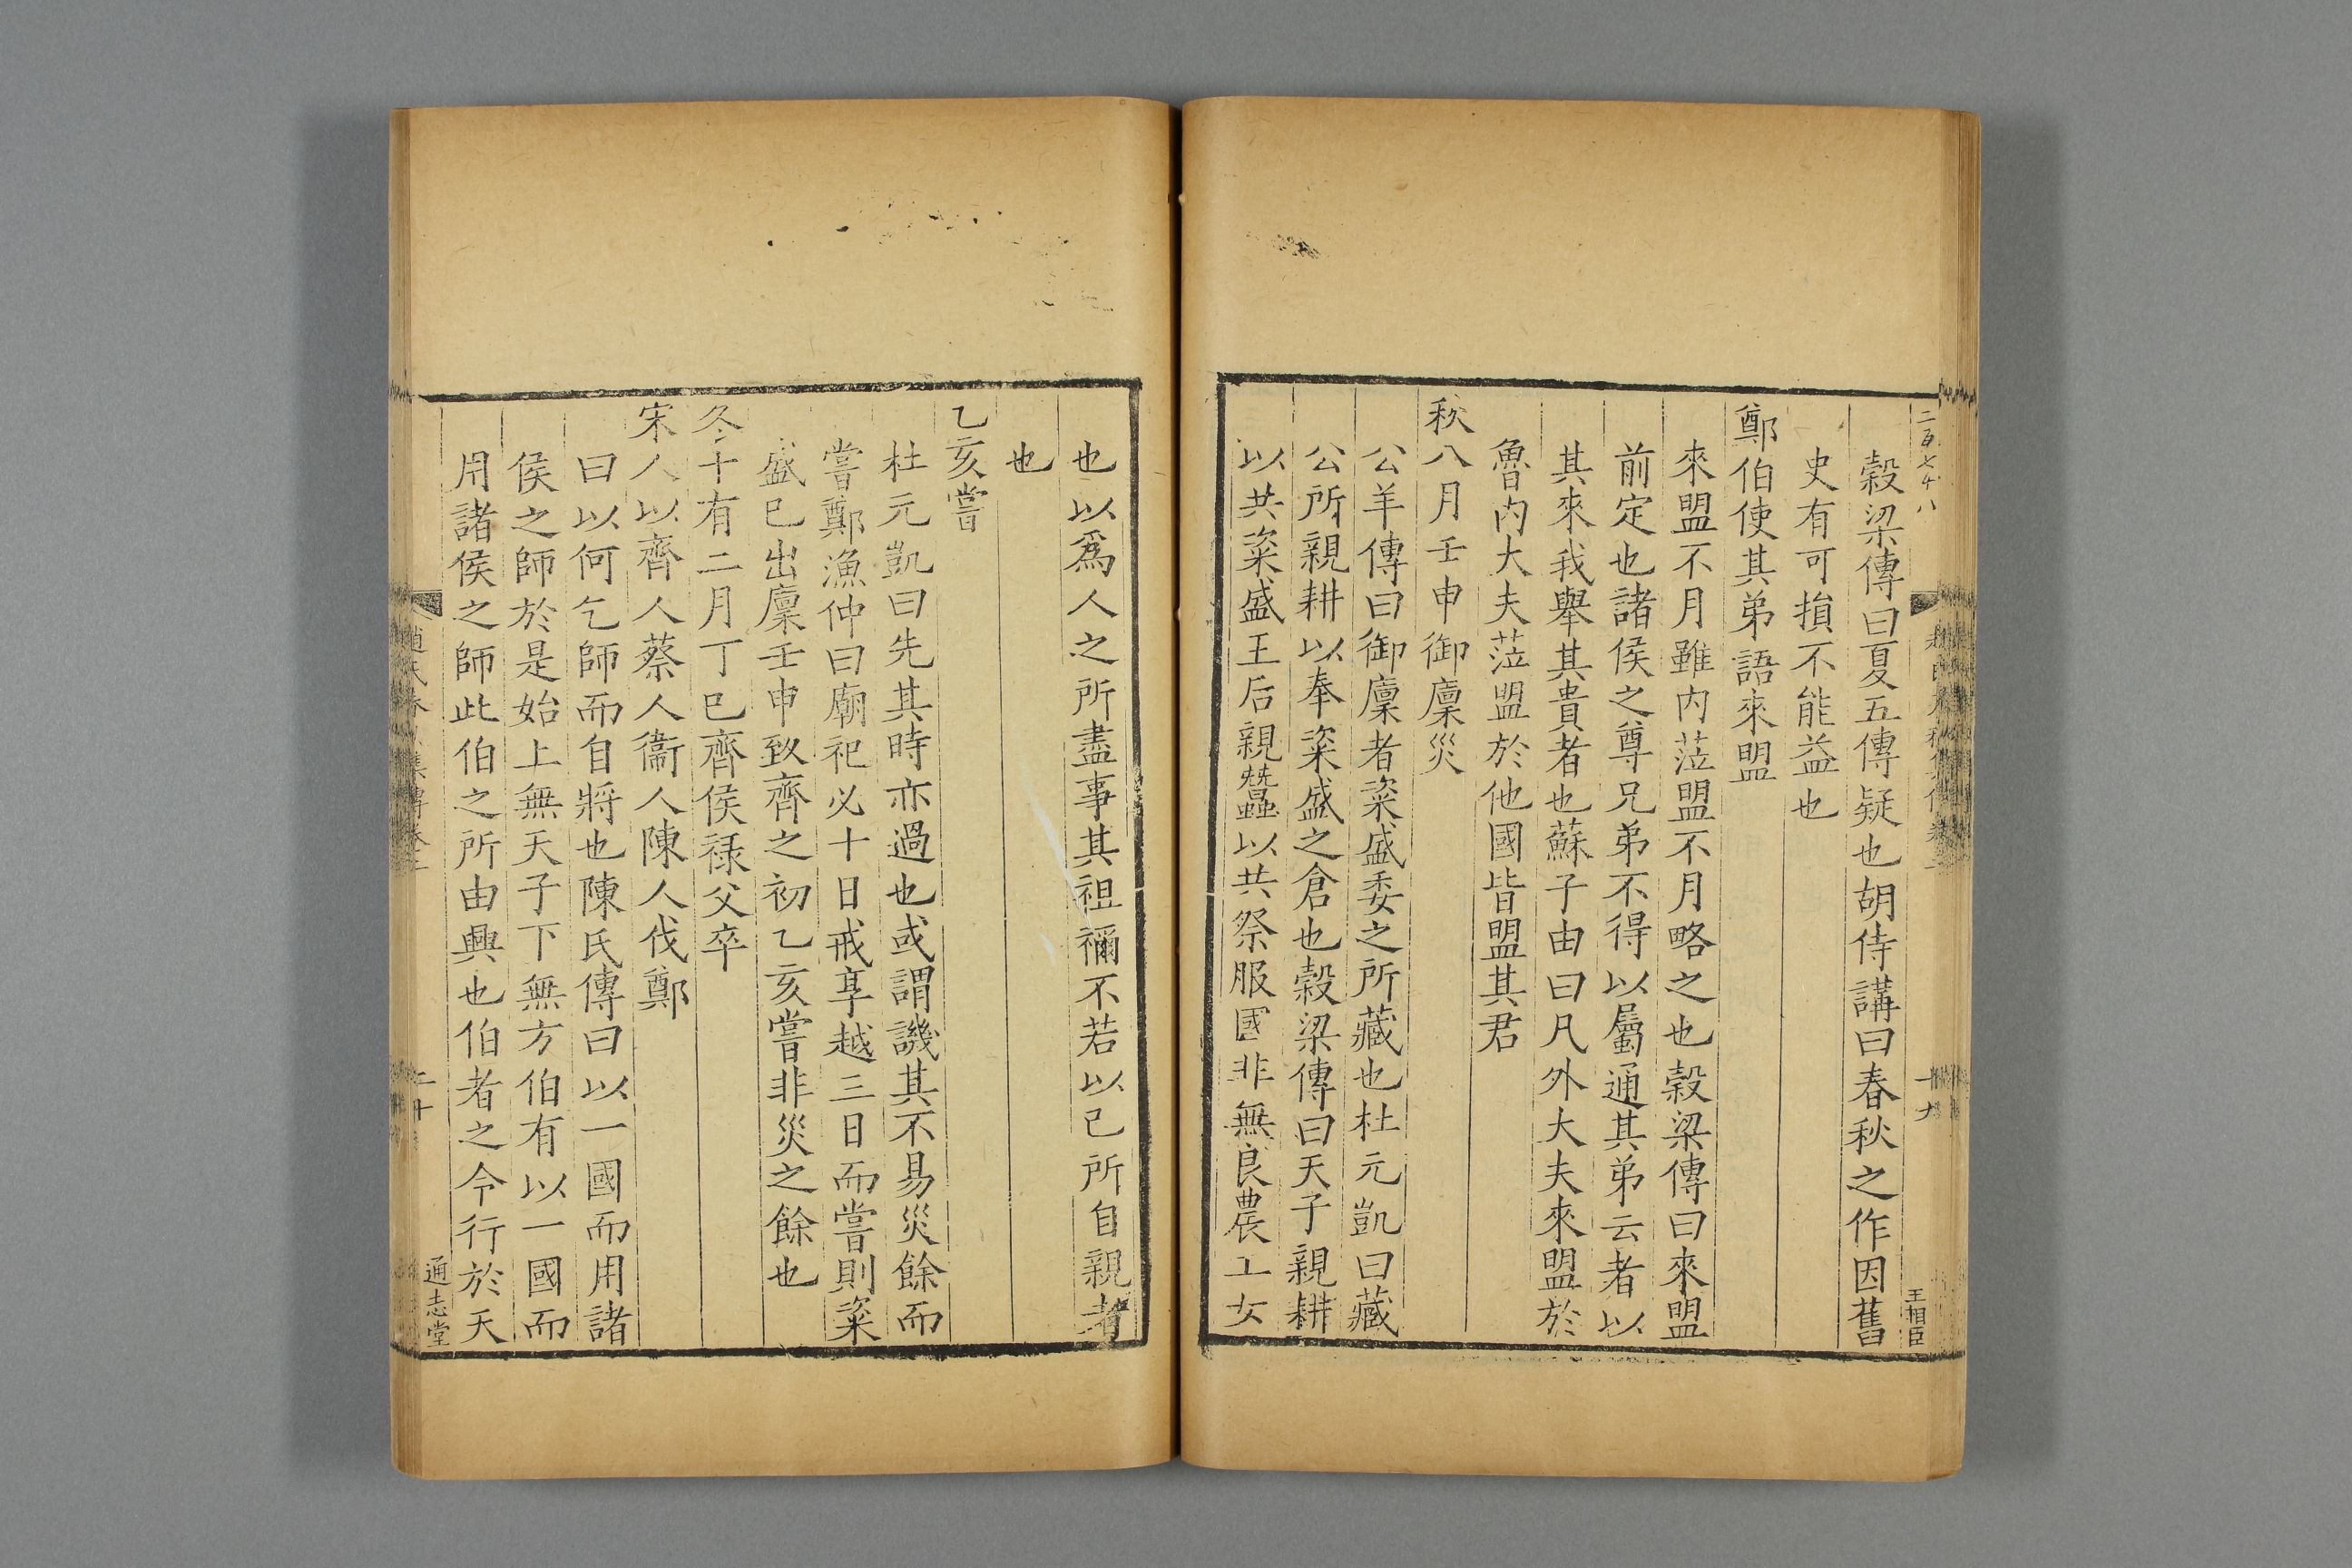 二百七十八
穀梁傳曰夏五傳疑也胡侍講曰春秋之作因舊
史有可損不能益也
鄭伯使其弟語來盟
來盟不月雖内蒞盟不月略之也穀梁傳曰來盟
前定也諸侯之尊兄弟不得以屬通其弟云者以
其來我舉其貴者也蘇子由曰凡外大夫來盟於
魯内大夫蒞盟於他國皆盟其君
秋八月壬申御廩災
公羊傳曰御廩者粢盛委之所藏也杜元凱曰藏
公所親耕以奉粢盛之倉也穀梁傳曰天子親耕
以共粢盛王后親蠶以共祭服國非無良農工女
十九
王相臣
也以爲人之所盡事其祖禰不若以己所自親者
也
乙亥嘗
杜元凱曰先其時亦過也或謂譏其不易災餘而
嘗鄭漁仲曰廟祀必十日戒享越三日而嘗則粢
盛已出廩壬申致齊之初乙亥嘗非災之餘也
冬十有二月丁巳齊侯祿父卒
宋人以齊人蔡人衞人陳人伐鄭
曰以何乞師而自將也陳氏傳曰以一國而用諸
侯之師於是始上無天子下無方伯有以一國而
用諸侯之師此伯之所由興也伯者之令行於天
二十
通志堂